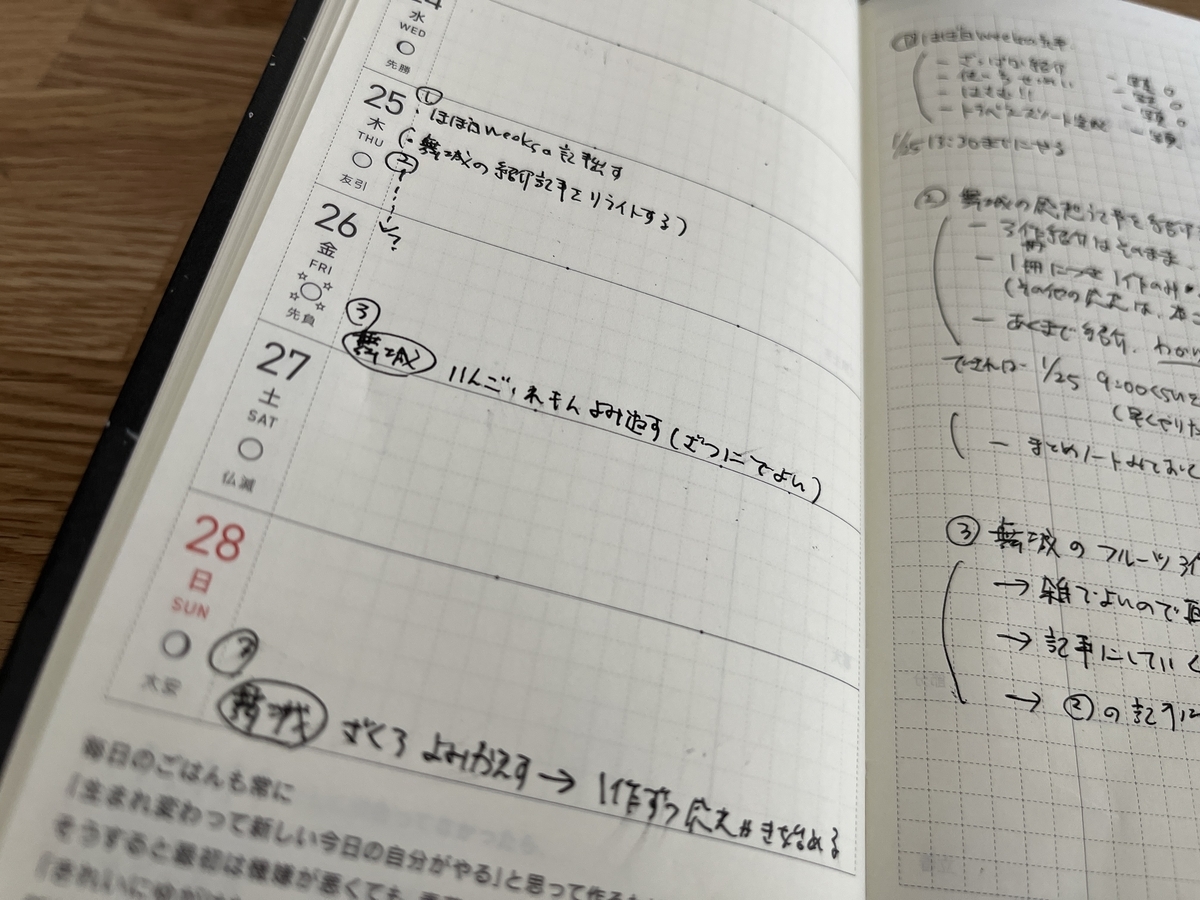 水
WED
先勝
25
木
THU
友引
① ほぼ日weeksの記事出す
② (・舞城の紹介記事をリライトする)
?
26
金
FRI
先負
③
舞城 りんご、れもん よみ返す(ざつにでよい)
27
土
SAT
仏滅
28
日
SUN
大安
③
舞城 ざくろ よみかえす→1作ずつ 書き始める
毎日のごはんも常に
「生まれ変わって新しい今日の自分がやる」と思って作る
そうすると最初は機嫌が悪くても、
「きれいに
① ほぼ日weeksの記事
1/25 13:30までにやる
② 舞城の 紹介
- 3作紹介はそのまま
- 1冊につき1作のみ
(その他の は、本
- あくまで紹介、
できれば 1/25 9:00くらい
(早くやりた
- まとめノートみておく
③ 舞城のフルーツ3作
→ 雑でよいので
→ 記事にしていく
→ ②の記事に